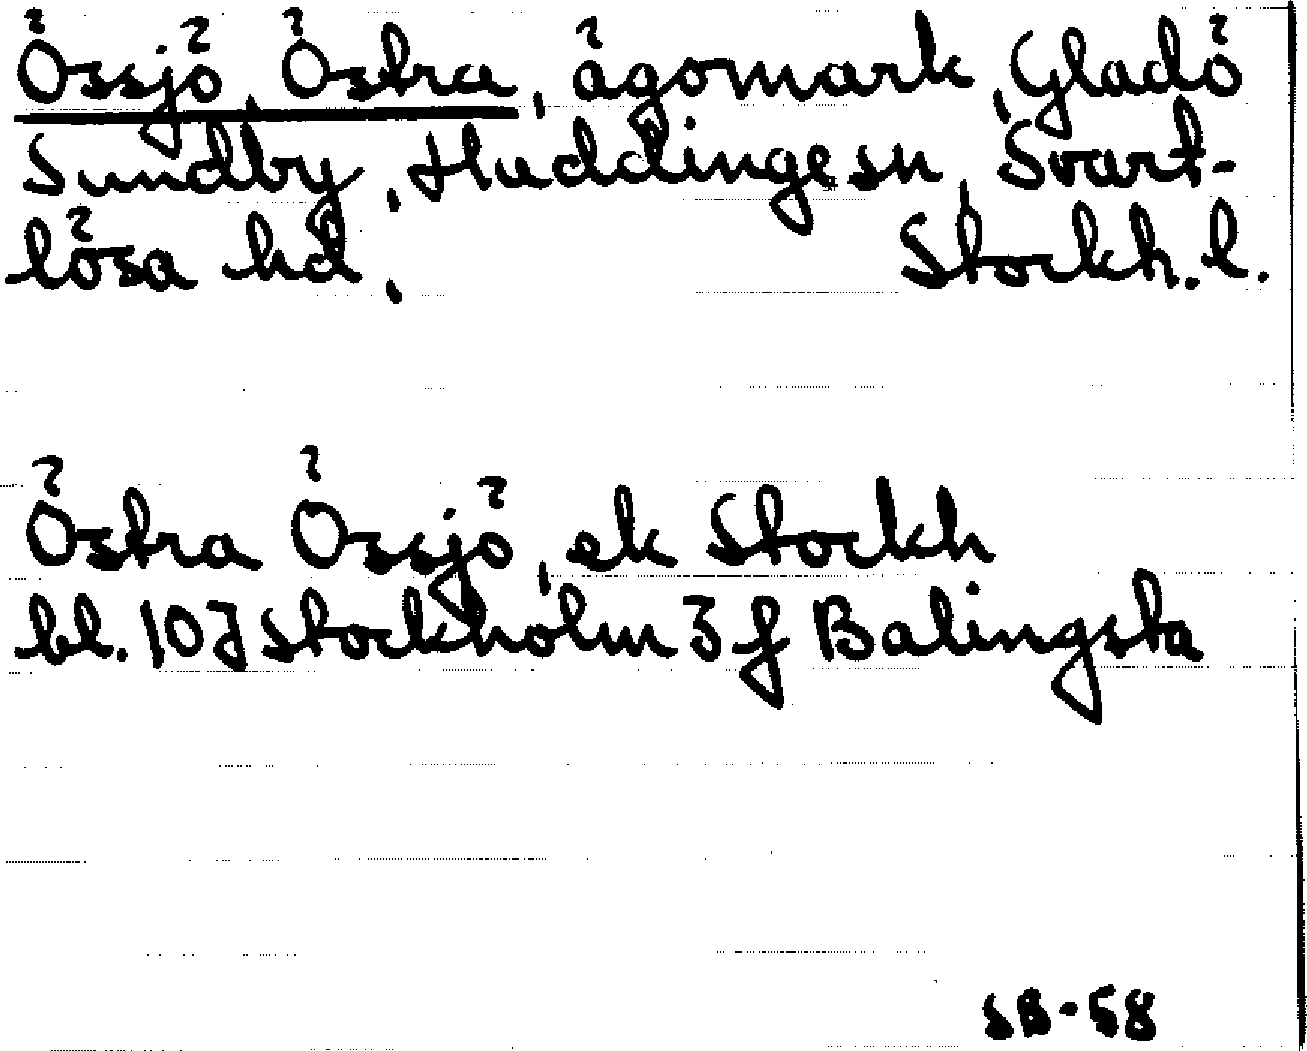 Össjö, Östra, ägomark, Gladö
Sundby, Huddinge sn, Svart-
lösa hd. Stockh. l.
Östra Össjö, ek Stockh
bl. 10J Stockholm 3 f Balingsta
SB-58